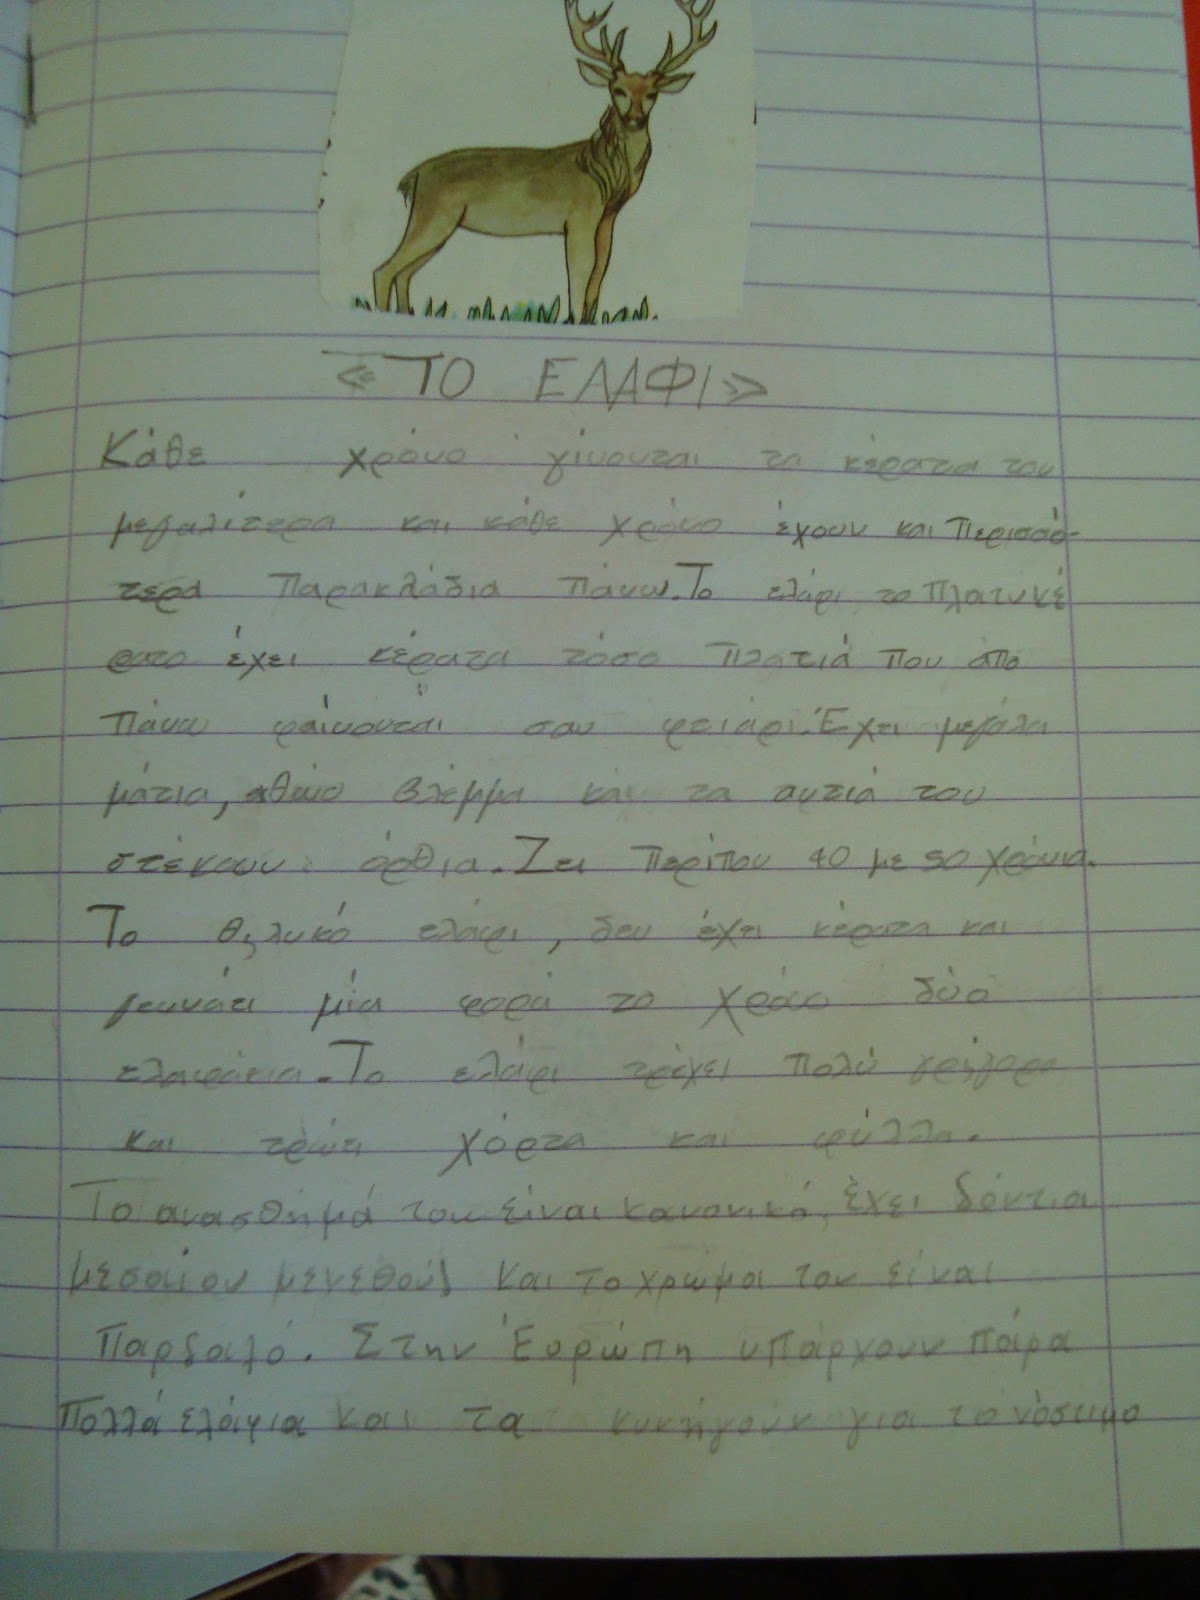 «ΤΟ ΕΛΑΦΙ»
Κάθε χρόνο γίνονται τα κέρατα του
μεγαλίτερα και κάθε χρόνο έχουν και περισσό-
τερα παρακλάδια πάνω. Το ελάφι το πλατυκέ
ρατο έχει κέρατα τόσο πλατιά που από
πάνω φαίνονται σαν φτιάρι. Έχει μεγάλα
μάτια, αθώο βλέμμα και τα αυτιά του
στέκουν όρθια. Ζει περίπου 40 με 50 χρόνια.
Το θηλυκό ελάφι, δεν έχει κέρατα και
γεννάει μία φορά το χρόνο δύο
ελαφάκια. Το ελάφι τρέχει πολύ γρήγορα
και τρώει χόρτα και φύλλα.
Το ανασθημά του είναι κανονικό, έχει δόντια
μεσαίου μεγεθούς και το χρώμα του είναι
παρδαλό. Στην Ευρώπη υπάρχουν πάρα
πολλά ελάφια και τα κυνηγούν για το νόστιμο